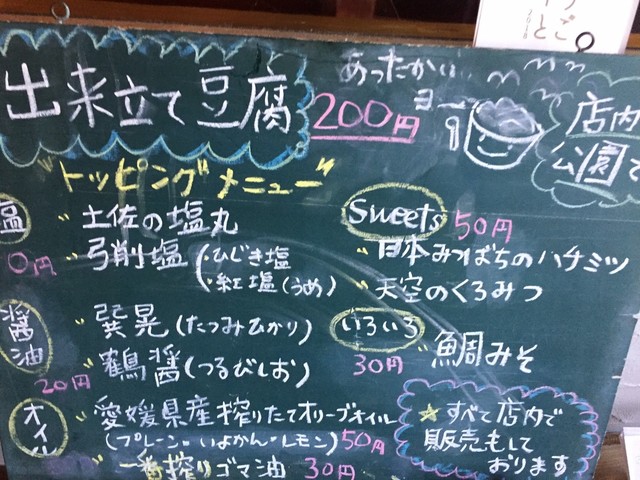 とご
2018
出来立て豆腐
200円
あったかい
店内
公園で
"トッピングメニュー"
塩
0円
〃土佐の塩丸
〃弓削塩(・ひじき塩
・紅塩(うめ)
醤油
20円
〃巽晃(たつみひかり)
〃鶴醤(つるびしお)
オイル
〃愛媛県産搾りたてオリーブオイル
(プレーン・いよかん・レモン) 50円
一番搾りゴマ油 30円
Sweets 50円
〃日本みつばちのハチミツ
〃天空のくろみつ
いろいろ
30円
〃鯛みそ
☆すべて店内で
販売もして
おります